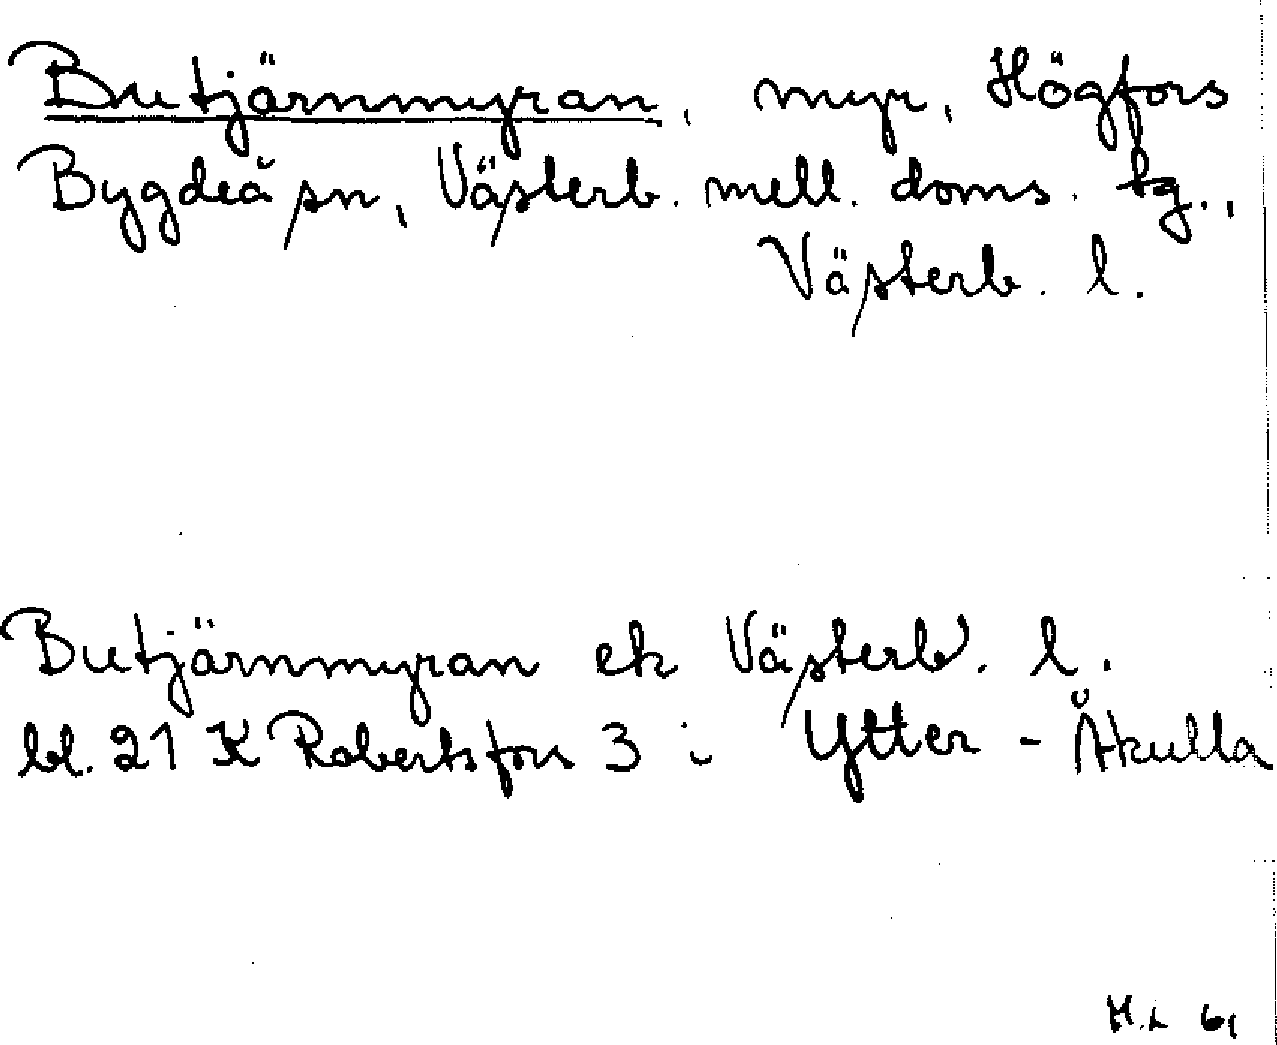 Butjärnmyran, myr, Högfors
Bygdeå sn, Västerb. mell. doms. tg.,
Västerb. l.
Butjärnmyran ek Västerb. l.
bl. 21 K Robertsfors 3 i Ytter-Åkulla
H.L 61